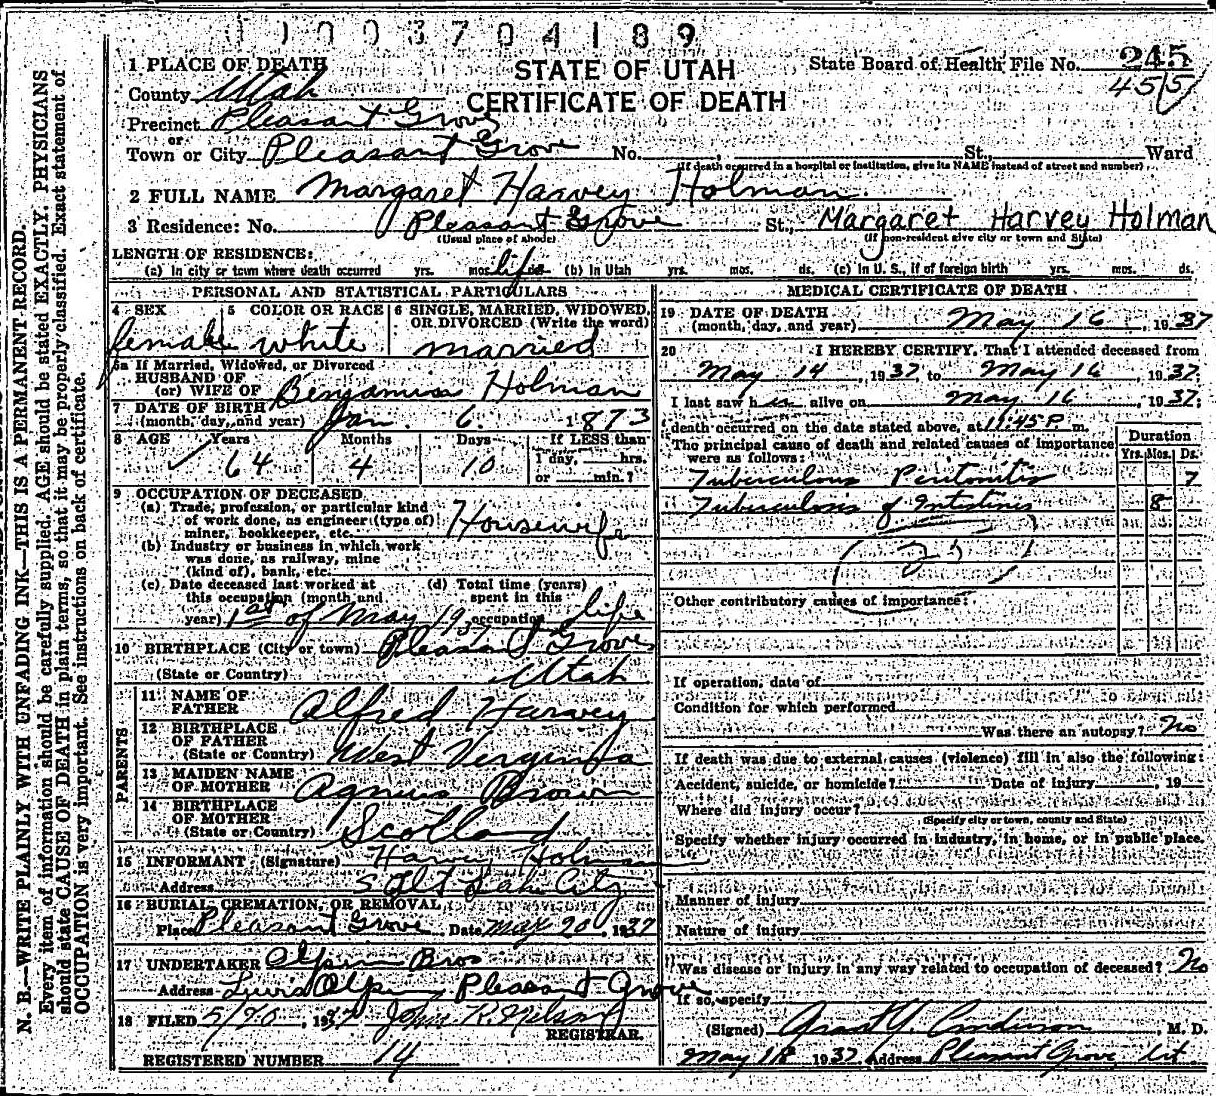 11003704189
1 PLACE OF DEATH
STATE OF UTAH
State Board of Health File No. 245
455
County Utah
CERTIFICATE OF DEATH
Precinct Pleasant Grove
or
Town or City Pleasant Grove No. St., Ward
(If death occurred in a hospital or institution, give its NAME instead of street and number)
2 FULL NAME Margaret Harvey Holman
3 Residence: No. Pleasant Grove St., Margaret Harvey Holman
(Usual place of abode) (If non-resident give city or town and State)
LENGTH OF RESIDENCE:
(a) In city or town where death occurred yrs. mos. life ds. (b) In Utah yrs. mos. ds. (c) In U. S., if of foreign birth yrs. mos. ds.
PERSONAL AND STATISTICAL PARTICULARS
4 SEX 5 COLOR OR RACE 6 SINGLE, MARRIED, WIDOWED, OR DIVORCED (Write the word)
female white married
5a If Married, Widowed, or Divorced
HUSBAND OF
(or) WIFE OF Benjamin Holman
7 DATE OF BIRTH
(month, day, and year) Jan. 6. 1873
8 AGE Years Months Days If LESS than
64 4 10 1 day, hrs.
or min.?
9 OCCUPATION OF DECEASED
(a) Trade, profession, or particular kind
of work done, as engineer (type of)
miner, bookkeeper, etc. Housewife
(b) Industry or business in which work
was done, as railway, mine
(kind of), bank, etc.
(c) Date deceased last worked at (d) Total time (years)
this occupation (month and spent in this
year) 1st of May 19 occupation life
10 BIRTHPLACE (City or town) Pleasant Grove
(State or Country) Utah
PARENTS
11 NAME OF
FATHER Alfred Harvey
12 BIRTHPLACE
OF FATHER
(State or Country) West Verginia
13 MAIDEN NAME
OF MOTHER Agnus Brown
14 BIRTHPLACE
OF MOTHER
(State or Country) Scotland
15 INFORMANT (Signature) Harvey Holman
Address Salt Lake City
16 BURIAL, CREMATION, OR REMOVAL
Place Pleasant Grove Date May 20, 1937
17 UNDERTAKER Olpin Bros
Address Lewis Olpin Pleasant Grove
18 FILED 5/20, 1937 John K. Nelson
REGISTRAR.
REGISTERED NUMBER 14
MEDICAL CERTIFICATE OF DEATH
19 DATE OF DEATH
(month, day, and year) May 16, 1937
20 I HEREBY CERTIFY, That I attended deceased from
May 14, 1937, to May 16, 1937
I last saw her alive on May 16, 1937;
death occurred on the date stated above, at 11:45 P m.
The principal cause of death and related causes of importance
were as follows:
Duration
Yrs. Mos. Ds.
Tuberculous Peritonitis 7
Tuberculosis of Intestines 8
Other contributory causes of importance:
If operation, date of
Condition for which performed
Was there an autopsy? No
If death was due to external causes (violence) fill in also the following:
Accident, suicide, or homicide? Date of injury, 19
Where did injury occur?
(Specify city or town, county and State)
Specify whether injury occurred in industry, in home, or in public place.
Manner of injury
Nature of injury
Was disease or injury in any way related to occupation of deceased? No
If so, specify
(Signed) Grant Y. Anderson, M. D.
May 18 1937 Address Pleasant Grove Ut.
N. B.—WRITE PLAINLY WITH UNFADING INK—THIS IS A PERMANENT RECORD.
Every item of information should be carefully supplied. AGE should be stated EXACTLY. PHYSICIANS
should state CAUSE OF DEATH in plain terms, so that it may be properly classified. Exact statement of
OCCUPATION is very important. See instructions on back of certificate.